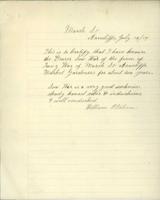 March St
July 14/19
This is to Certify that I have known
the Bearer Sew War of the firm of
War of March St
Market Gardeners for about ten years.
Sew War is a very good workman
steady honest sober & industrious
& well conducted
William